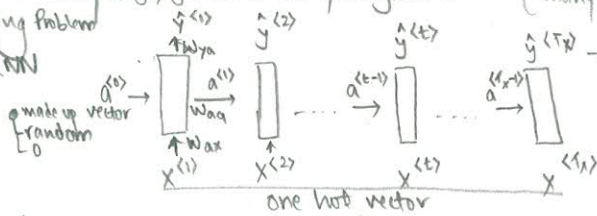 ng Problem
NN
ŷ<1> ŷ<2> ŷ<t> ŷ<Tx>
Wya
a<0> a<1> a<t-1> a<Tx-1>
Waa
made up vector
random
0
Wax
x<1> x<2> x<t> x<Tx>
one hot vector